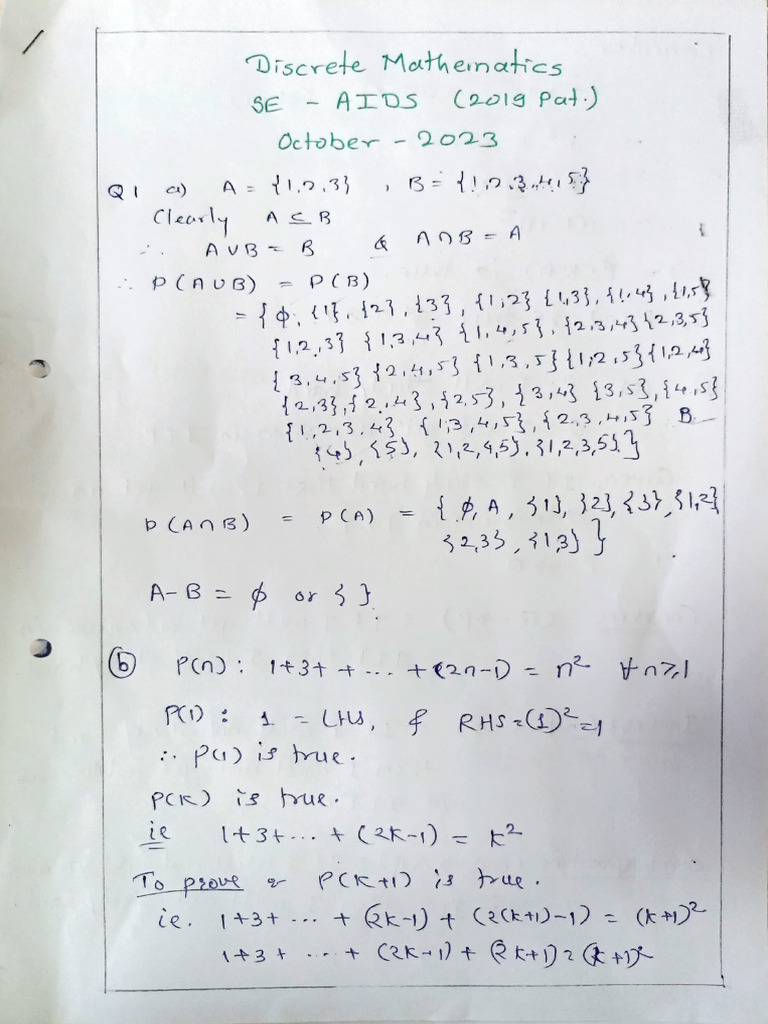 Discrete Mathematics
SE - AIDS (2019 Pat.)
October - 2023
Q1 a) A = {1,2,3} , B = {1,2,3,4,5}
Clearly A ⊆ B
∴ A∪B = B & A∩B = A
∴ P(A∪B) = P(B)
= {φ, {1}, {2}, {3}, {1,2} {1,3}, {1,4}, {1,5}
{1,2,3} {1,3,4} {1,4,5}, {2,3,4} {2,3,5}
{3,4,5} {2,4,5} {1,3,5} {1,2,5} {1,2,4}
{2,3}, {2,4}, {2,5}, {3,4} {3,5}, {4,5}
{1,2,3,4} {1,3,4,5}, {2,3,4,5} B
{4}, {5}, {1,2,4,5}, {1,2,3,5}}
P(A∩B) = P(A) = {φ, A, {1}, {2}, {3}, {1,2}
{2,3}, {1,3}}
A-B = φ or { }
(b) P(n) : 1+3+ + ... + (2n-1) = n² ∀ n≥1
P(1) : 1 = LHS, & RHS = (1)² = 1
∴ P(1) is true.
P(k) is true.
ie 1+3+ ... + (2k-1) = k²
To prove P(k+1) is true.
ie. 1+3+ ... + (2k-1) + (2(k+1)-1) = (k+1)²
1+3+ ... + (2k-1) + (2k+1) = (k+1)²